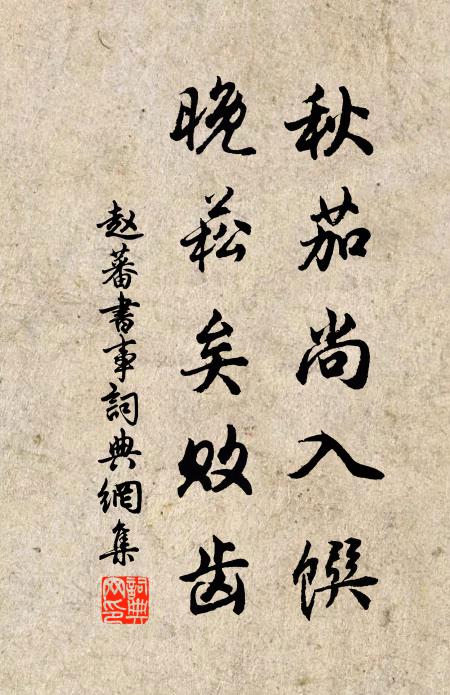 秋茄尚入馔
晚菘矣败齿
赵蕃書事詞典網集
詞典网印